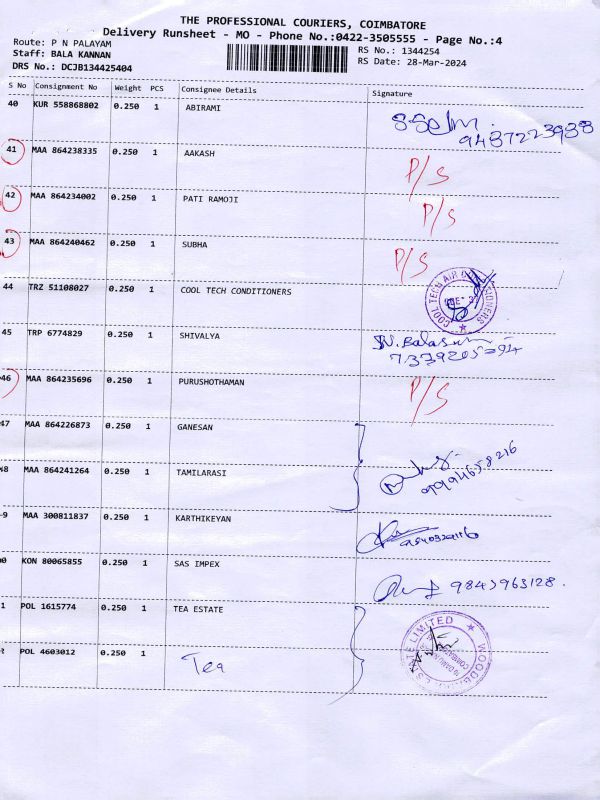 THE PROFESSIONAL COURIERS, COIMBATORE
Delivery Runsheet - MO - Phone No.:0422-3505555 - Page No.:4
Route: P N PALAYAM RS No.: 1344254
Staff: BALA KANNAN RS Date: 28-Mar-2024
DRS No.: DCJB134425404
S No Consignment No Weight PCS Consignee Details Signature
40 KUR 558868802 0.250 1 ABIRAMI
9487223988
41 MAA 864238335 0.250 1 AAKASH P/S
42 MAA 864234002 0.250 1 PATI RAMOJI P/S
43 MAA 864240462 0.250 1 SUBHA P/S
44 TRZ 51108027 0.250 1 COOL TECH CONDITIONERS COOL TECH AIR
45 TRP 6774829 0.250 1 SHIVALYA
46 MAA 864235696 0.250 1 PURUSHOTHAMAN P/S
47 MAA 864226873 0.250 1 GANESAN
48 MAA 864241264 0.250 1 TAMILARASI 9994658216
9 MAA 300811837 0.250 1 KARTHIKEYAN
0 KON 80065855 0.250 1 SAS IMPEX 9843963128.
1 POL 1615774 0.250 1 TEA ESTATE LIMITED
POL 4603012 0.250 1 Tea